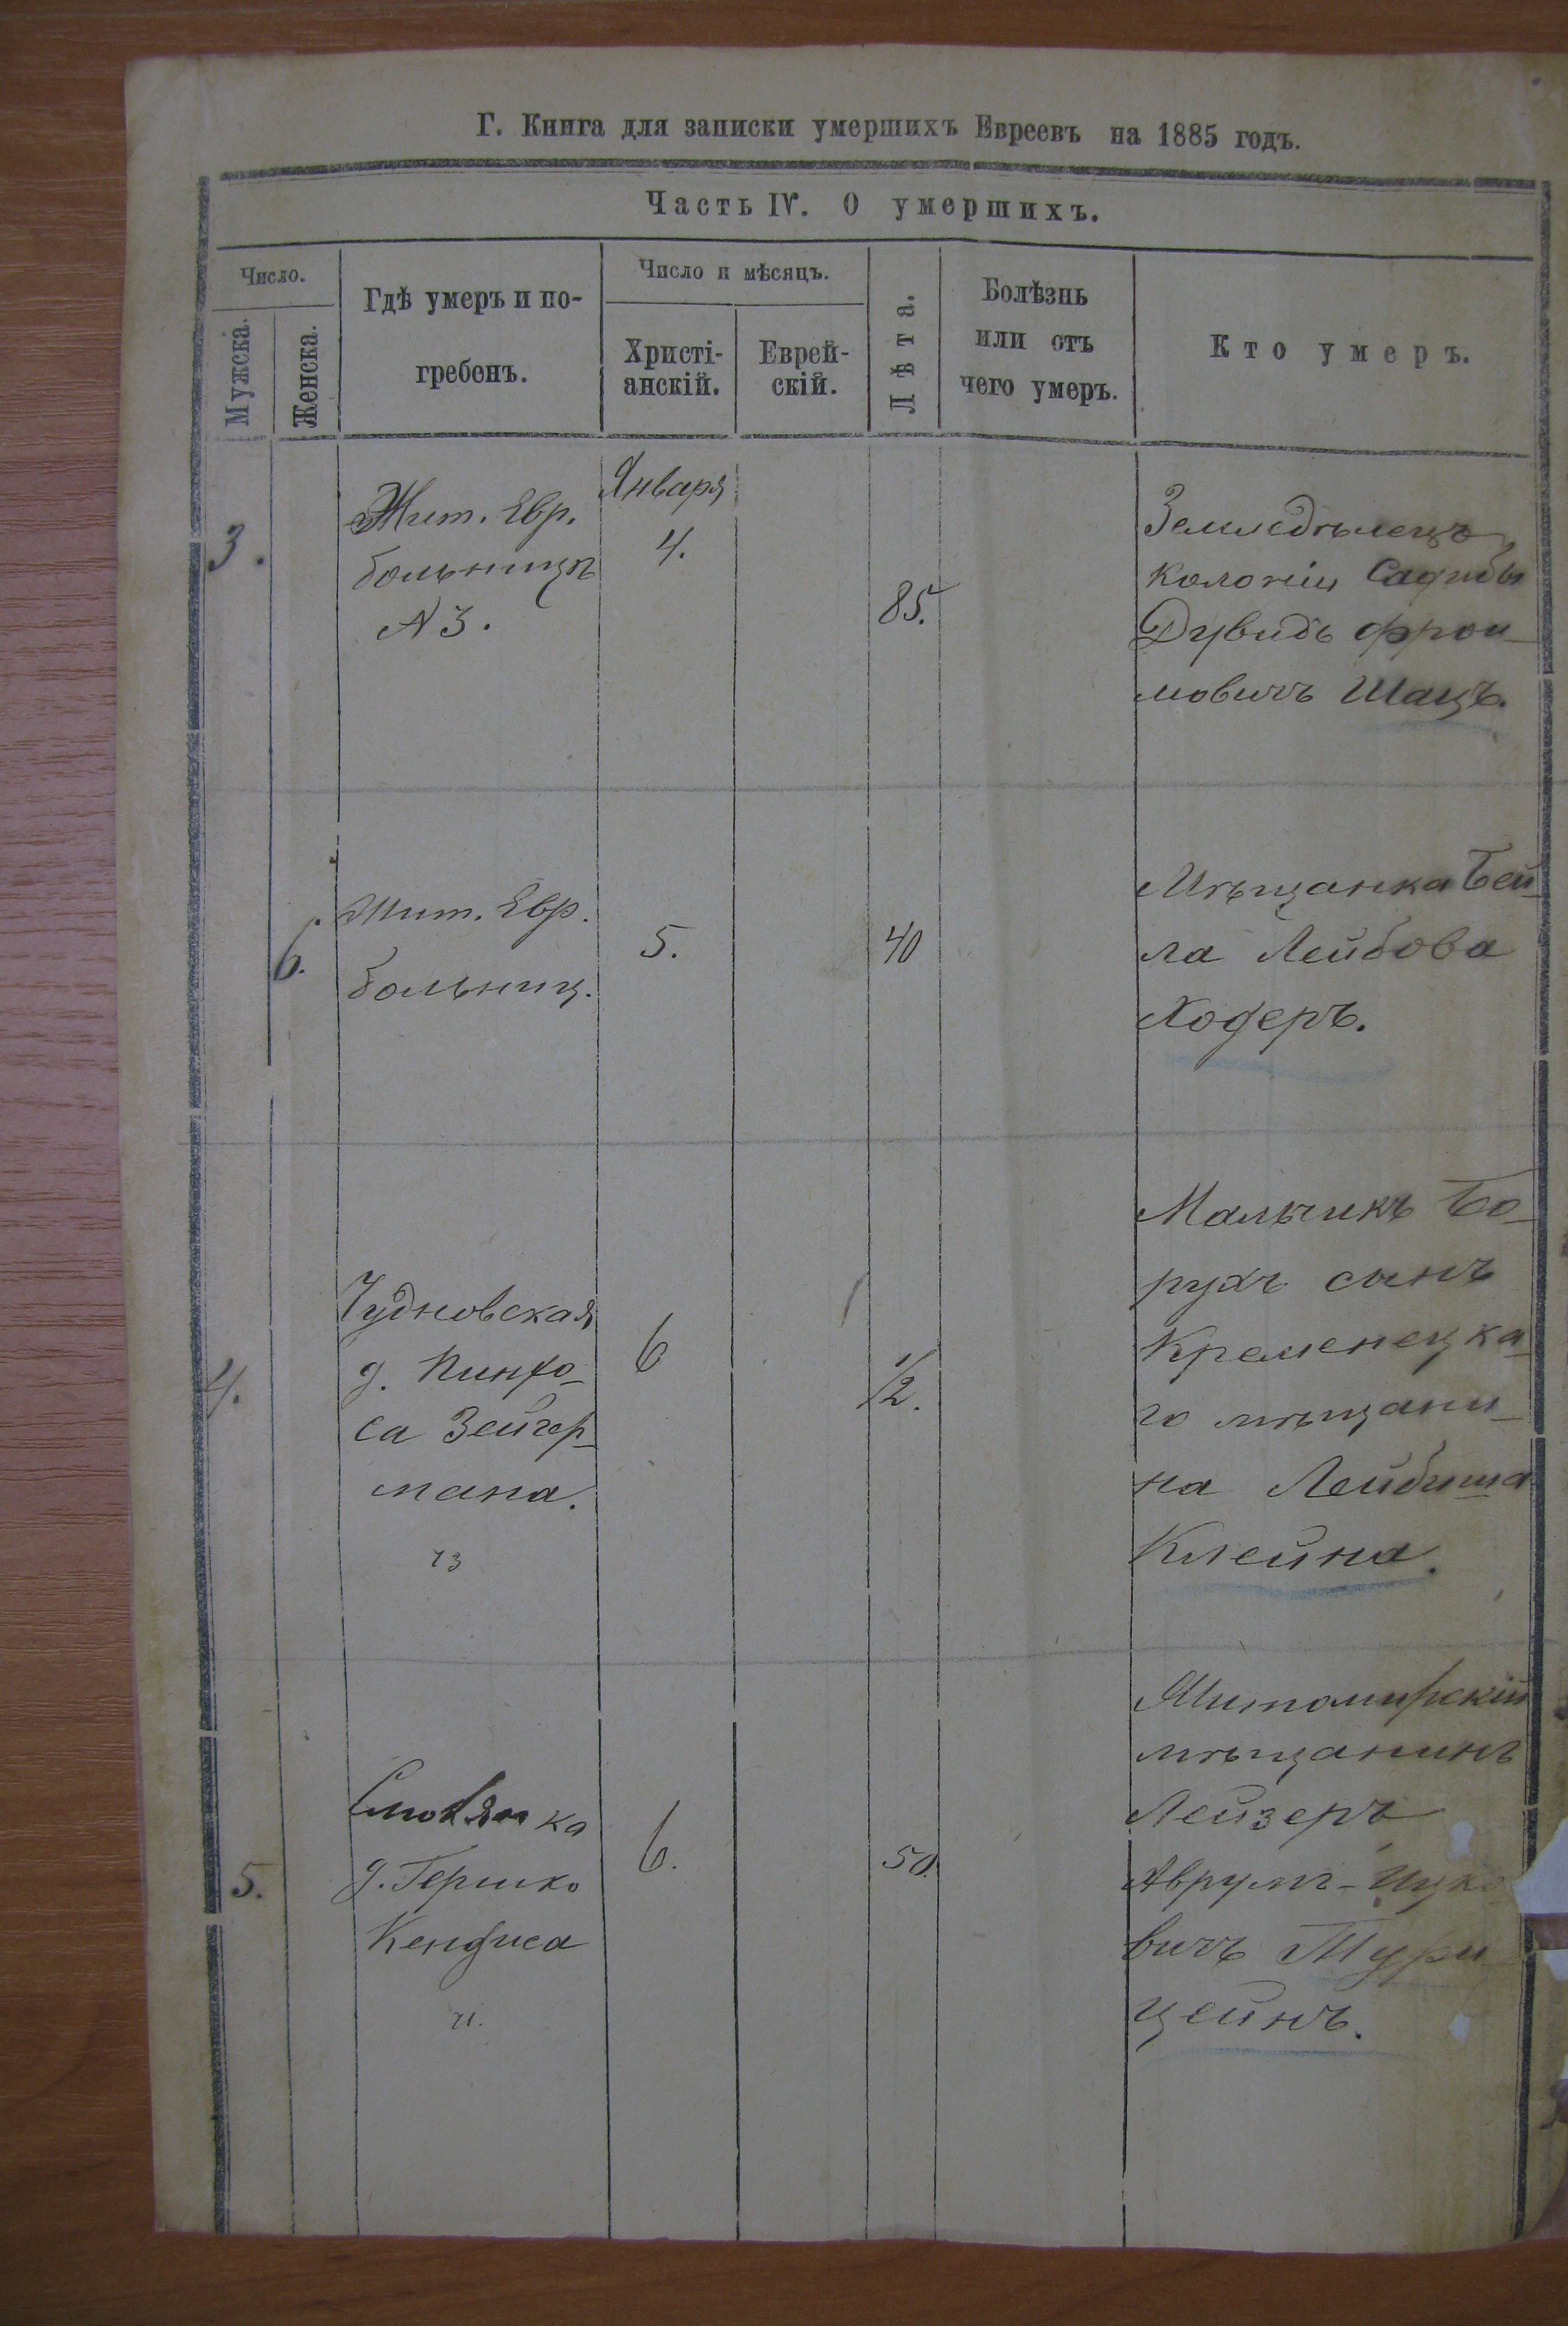 Г. Книга для записки умершихъ Евреевъ на 1885 годъ.
Часть IV. О умершихъ.
Число.
Мужска.
Женска.
Гдѣ умеръ и по-
гребенъ.
Число и мѣсяцъ.
Христі-
анскій.
Еврей-
скій.
Лѣта.
Болѣзнь
или отъ
чего умеръ.
Кто умеръ.
3.
Жит. Евр.
больницѣ
№ 3.
Января
4.
85.
Земледѣлецъ
колоніи
Дувидъ Фрои-
мовичъ Шацъ.
6.
Жит. Евр.
больниц.
5.
40
Мѣщанка Бей-
ла Лейбова
Ходеръ.
4.
Чудновская
д. Пинхо-
са Зейгер-
мана.
73
6
1/2.
Мальчикъ Бо-
рухъ сынъ
Кременецка-
го мѣщани-
на Лейбиша
Клейна.
5.
д. Гершко
6.
50.
Житомирскій
мѣщанинъ
Лейзеръ
Аврумъ-Ицко
вичъ
цейнъ.